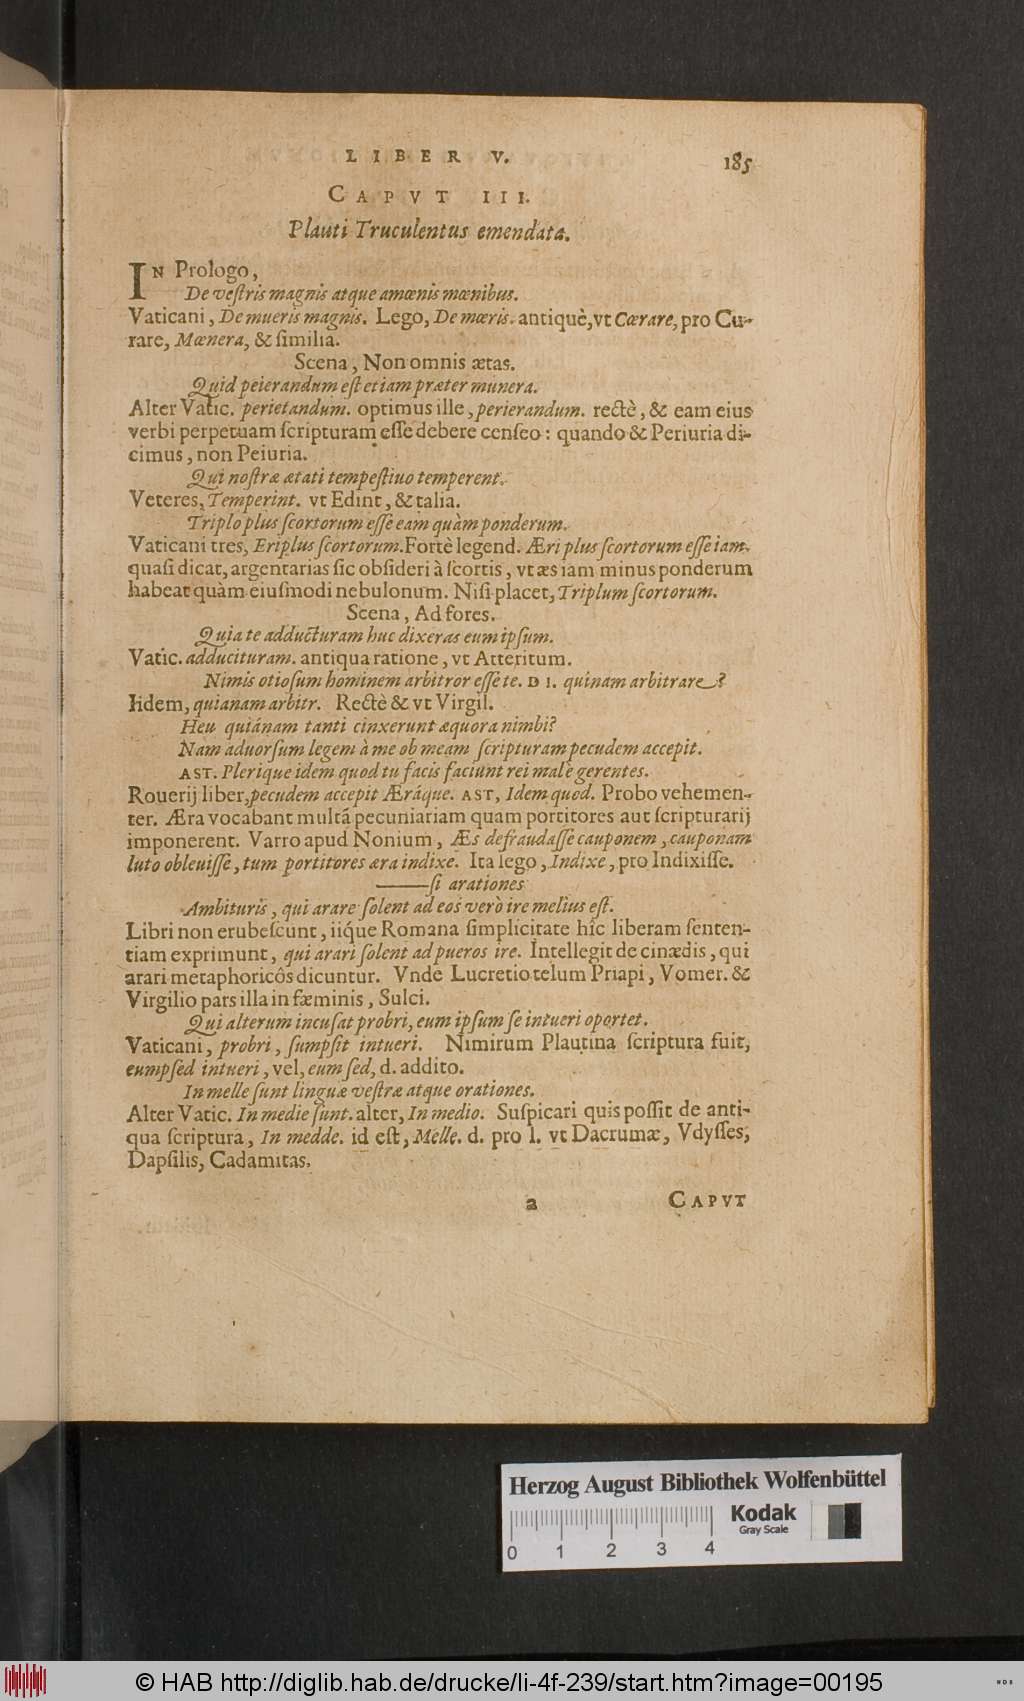 LIBER V. 185
CAPVT III.
Plauti Truculentus emendata.
IN Prologo,
De veſtris magnis atque amœnis mœnibus.
Vaticani, De mueris magnis. Lego, De mœris. antiquè, vt Cœrare, pro Cu-
rare, Mœnera, & ſimilia.
Scena, Non omnis ætas.
Quid peierandum eſt etiam præter munera.
Alter Vatic. perietandum. optimus ille, perierandum. rectè, & eam eius
verbi perpetuam ſcripturam eſſe debere cenſeo: quando & Periuria di-
cimus, non Peiuria.
Qui noſtræ ætati tempeſtiuo temperent.
Veteres, Temperint. vt Edint, & talia.
Triplo plus ſcortorum eſſe eam quàm ponderum.
Vaticani tres, Eriplus ſcortorum. Fortè legend. Æri plus ſcortorum eſſe iam.
quaſi dicat, argentarias ſic obſideri à ſcortis, vt æs iam minus ponderum
habeat quàm eiuſmodi nebulonum. Niſi placet, Triplum ſcortorum.
Scena, Ad fores.
Quia te adducturam huc dixeras eum ipſum.
Vatic. adducituram. antiqua ratione, vt Atteritum.
Nimis otioſum hominem arbitror eſſe te. DI. quinam arbitrare?
Iidem, quianam arbitr. Rectè & vt Virgil.
Heu quiánam tanti cinxerunt æquora nimbi?
Nam aduorſum legem à me ob meam ſcripturam pecudem accepit.
AST. Plerique idem quod tu facis faciunt rei malè gerentes.
Rouerij liber, pecudem accepit Æráque. AST, Idem quod. Probo vehemen-
ter. Æra vocabant multã pecuniariam quam portitores aut ſcripturarij
imponerent. Varro apud Nonium, Æs defraudaſſe cauponem, cauponam
luto obleuiſſe, tum portitores æra indixe. Ita lego, Indixe, pro Indixiſſe.
——ſi arationes
Ambituris, qui arare ſolent ad eos verò ire melius eſt.
Libri non erubeſcunt, iiq́ue Romana ſimplicitate hîc liberam ſenten-
tiam exprimunt, qui arari ſolent ad pueros ire. Intellegit de cinædis, qui
arari metaphoricôs dicuntur. Vnde Lucretio telum Priapi, Vomer. &
Virgilio pars illa in fæminis, Sulci.
Qui alterum incuſat probri, eum ipſum ſe intueri oportet.
Vaticani, probri, ſumpſit intueri. Nimirum Plautina ſcriptura fuit,
eumpſed intueri, vel, eum ſed, d. addito.
In melle ſunt linguæ veſtræ atque orationes.
Alter Vatic. In medie ſunt. alter, In medio. Suſpicari quis poſſit de anti-
qua ſcriptura, In medde. id eſt, Melle. d. pro l. vt Dacrumæ, Vdyſſes,
Dapſilis, Cadamitas.
a CAPVT
Herzog August Bibliothek Wolfenbüttel
Kodak
Gray Scale
0 1 2 3 4
© HAB http://diglib.hab.de/drucke/li-4f-239/start.htm?image=00195